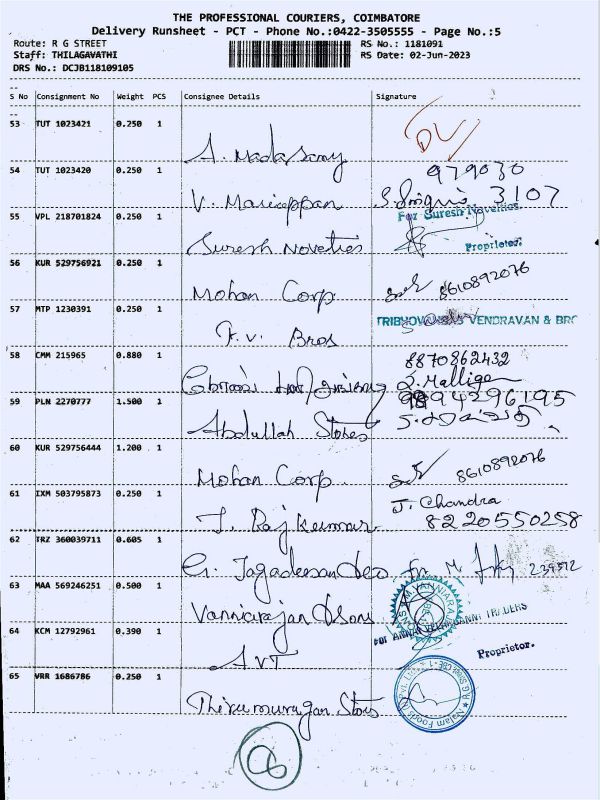 THE PROFESSIONAL COURIERS, COIMBATORE
Delivery Runsheet - PCT - Phone No.:0422-3505555 - Page No.:5
Route: R G STREET RS No.: 1181091
Staff: THILAGAVATHI RS Date: 02-Jun-2023
DRS No.: DCJB118109105
S No Consignment No Weight PCS Consignee Details Signature
53 TUT 1023421 0.250 1
A. Madasamy DL
54 TUT 1023420 0.250 1 979030
V. Mariappan 3107
55 VPL 218701824 0.250 1 For Suresh Novelties.
Suresh Novelties Proprietor.
56 KUR 529756921 0.250 1
Mohan Corp 8610892076
57 MTP 1230391 0.250 1 VENDRAVAN & BRO
F.V. Bros
58 CMM 215965 0.880 1 8870862432
S. Malliga
59 PLN 2270777 1.500 1 9894296195
Abdullah Stores
60 KUR 529756444 1.200 1
Mohan Corp 8610892076
61 IXM 503795873 0.250 1 J. Chandra
T. Rajkumar 8220550258
62 TRZ 360039711 0.605 1
G. Jagadeesan & co
63 MAA 569246251 0.500 1
Vanniarajan & Sons
64 KCM 12792961 0.390 1 TRADERS
AVT Proprietor.
65 VRR 1686786 0.250 1
Thirumurugan Stores